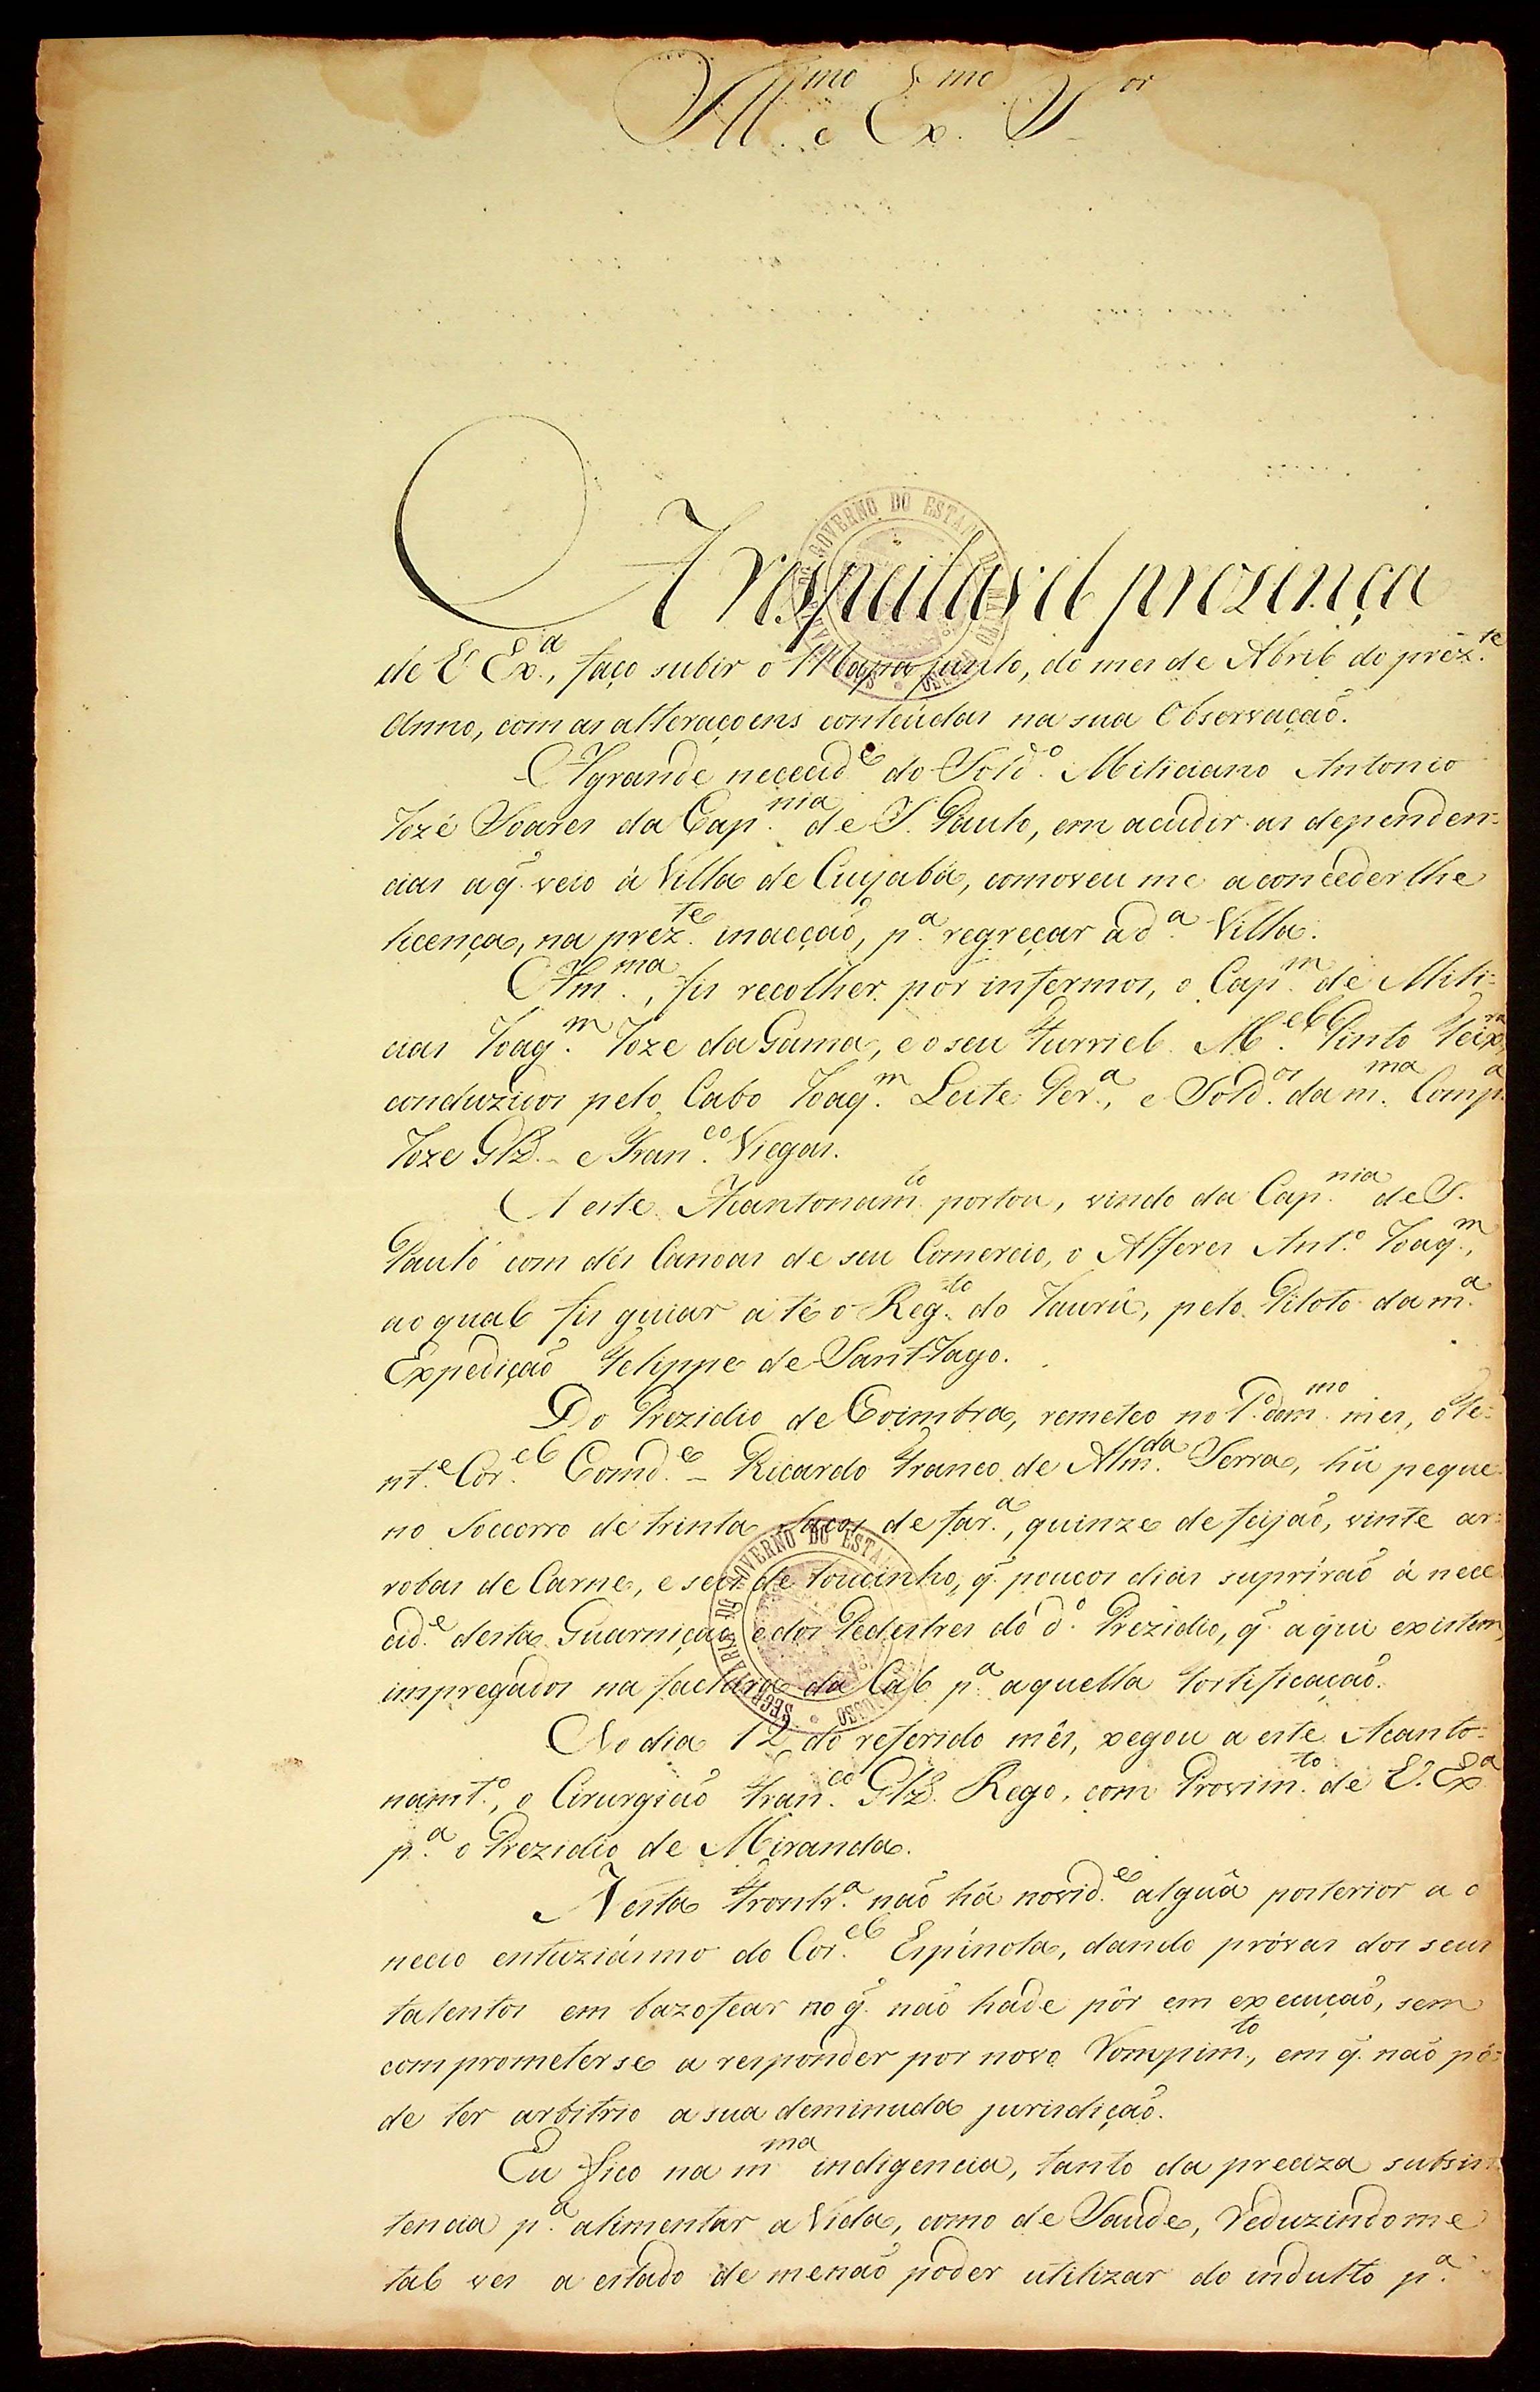 Ill.mo e Ex.mo S.or
A respeitavel prezença
de V. Ex.a, faço subir o Mapa junto, do mes de Abril do prez.te
Anno, com as alteraçoens conteúdas na sua Observaçaõ.
A grande nececid.e do Sold.o Miliciano Antonio
Jozé Soares da Cap.nia de S. Paulo, em acudir as dependen=
cias a q̃ veio à Villa de Cuyabá, comoveu me a conceder lhe
licença, na prez.te inacçaõ, p.a regreçar a d.a Villa.
A m.ma, fis recolher por infermos, o Cap.m de Mili=
cias Joaq.m Joze da Gama, e o seu Furriel M.el Pinto Teix.ra
conduzidos pelo Cabo Joaq.m Leite Per.a, e Sold.os da m.ma Comp.a
Joze Glz. e Fran.co Viegas.
A este Acantonam.to portou, vindo da Cap.nia de S.
Paulo com dés Canoas de seu Comercio, o Alferes Ant.o Joaq.m,
ao qual fis guiar a té o Reg.to do Jaurú, pelo Piloto da m.a
Expediçaõ Felippe de Sant-Iago.
Do Prezidio de Coimbra, remeteo no 1.o do m.mo mes, o Te=
nt.e Cor.el Comd.e Ricardo Franco de Alm.da Serra, hũ peque
no Soccorro de trinta sacos de far.a, quinze de feijaõ, vinte ar=
robas de Carne, e seis de toucinho, q̃ poucos dias supriraõ á nece
cid.e desta Guarniçaõ e dos Pedestres do d.o Prezidio, q̃ aqui existem,
impregados na factura da Cal p.a aquella Fortificaçaõ.
No dia 12 do referido mês, xegou a este Acanto=
namt.o, o Cirurgiaõ Fran.co Glz. Rego, com Provim.to de V. Ex.a
p.a o Prezidio de Miranda.
Nesta Frontr.a naõ há novid.e algũa posterior a o
necio entuziásmo do Cor.el Espinola, dando próvas dos seus
talentos em bazofear no q̃ naõ hade pôr em execuçaõ, sem
comprometerse a responder por novo Rompim.to, em q̃ naõ pó=
de ter arbitrio a sua deminuda jurisdiçaõ.
Eu fico na m.ma indigencia, tanto da preciza subsis=
tencia p.a alimentar a Vida, como de Saude, reduzindo me
tal ves a estado de me naõ poder utilizar do indulto p.a
SECRETARIA DO GOVERNO DO ESTADO DE MATTO GROSSO
SECRETARIA DO GOVERNO DO ESTA GROSSO